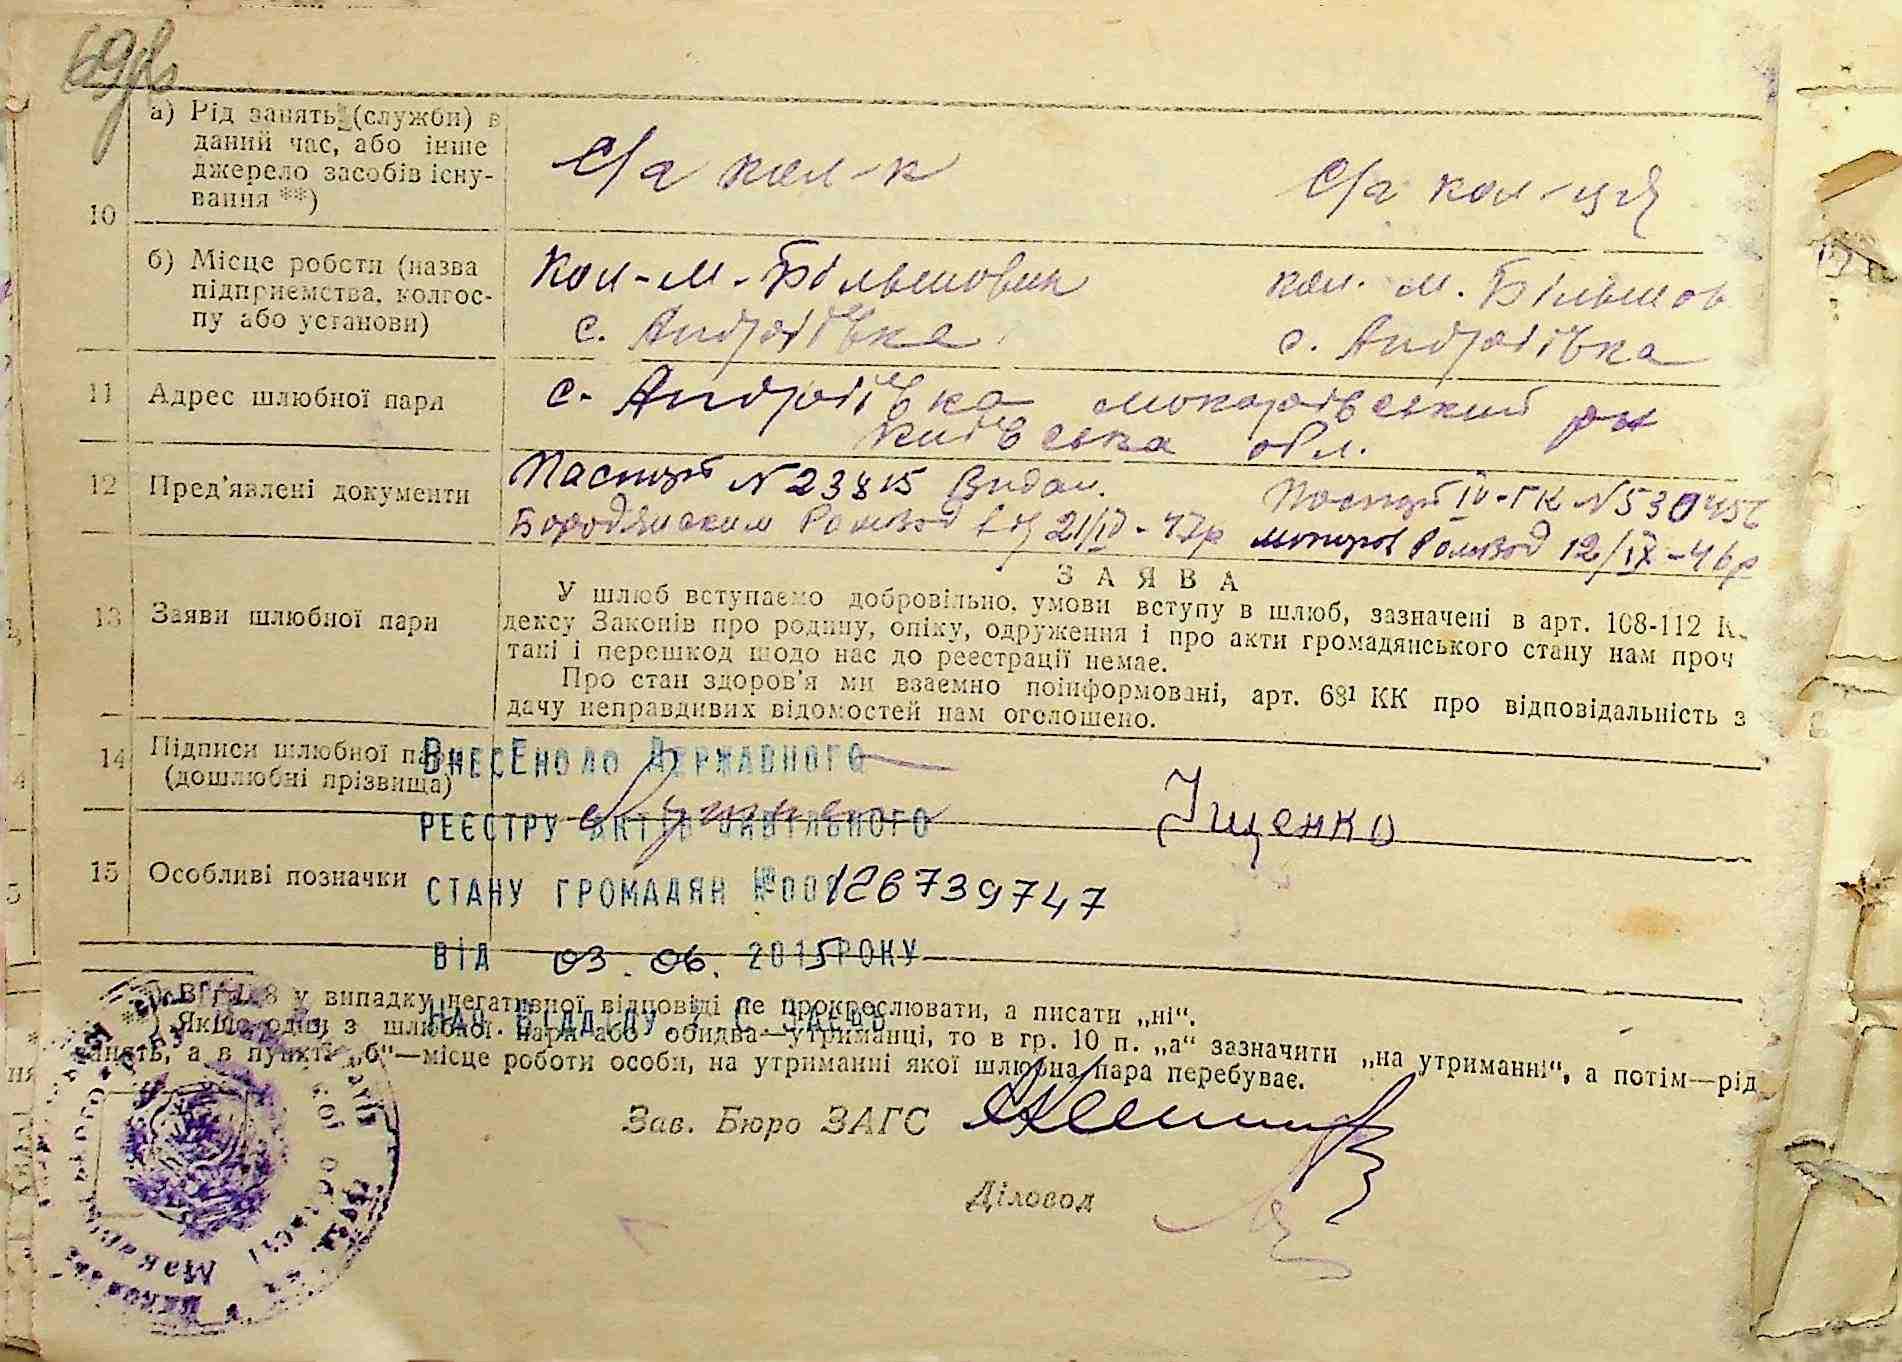 69
а) Рід занять (служби) в
даний час, або інше
джерело засобів існу-
вання **)
с/г кол-к
с/г кол-ця
10
б) Місце роботи (назва
підприємства, колгос-
пу або установи)
Кол-М. Більшовик
с. Андріївка
кол. М. Більшов
с. Андріївка
11 Адрес шлюбної пари
с. Андріївка Макарівський р-н
Київська обл.
12 Пред'явлені документи
Паспорт N 23815 Видан.
Бородянським від 21/IV-47р
Паспорт IV-ГК N 530456
12/IX-46р
13 Заяви шлюбної пари
ЗАЯВА
У шлюб вступаємо добровільно, умови вступу в шлюб, зазначені в арт. 108-112 К
дексу Законів про родину, опіку, одруження і про акти громадянського стану нам проч
тані і перешкод щодо нас до реєстрації немає.
Про стан здоров'я ми взаємно поінформовані, арт. 68¹ КК про відповідальність з
дачу неправдивих відомостей нам оголошено.
14 Підписи шлюбної пари
(дошлюбні прізвища)
Іщенко
15 Особливі позначки
ВНЕСЕНО ДО ДЕРЖАВНОГО
РЕЄСТРУ АКТІВ ЦИВІЛЬНОГО
СТАНУ ГРОМАДЯН №00126739747
ВІД 03.06.2015 РОКУ
НАЧ.ВІДДІЛУ
*) В гр. 8 у випадку негативної відповіді не прокреслювати, а писати „ні“.
**) Якщо один з шлюбної пари або обидва—утриманці, то в гр. 10 п. „а“ зазначити „на утриманні“, а потім—рід
занять, а в пункті „б“—місце роботи особи, на утриманні якої шлюбна пара перебуває.
Зав. Бюро ЗАГС
Діловод